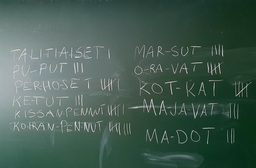 TALITIAISET I
PU-PUT III
PERHOSET IIII
KETUT III
KISSANPENNUT
KOIRANPENNUT
MAR-SUT IIII
O-RA-VAT
KOT-KAT
MAJAVAT
MA-DOT III